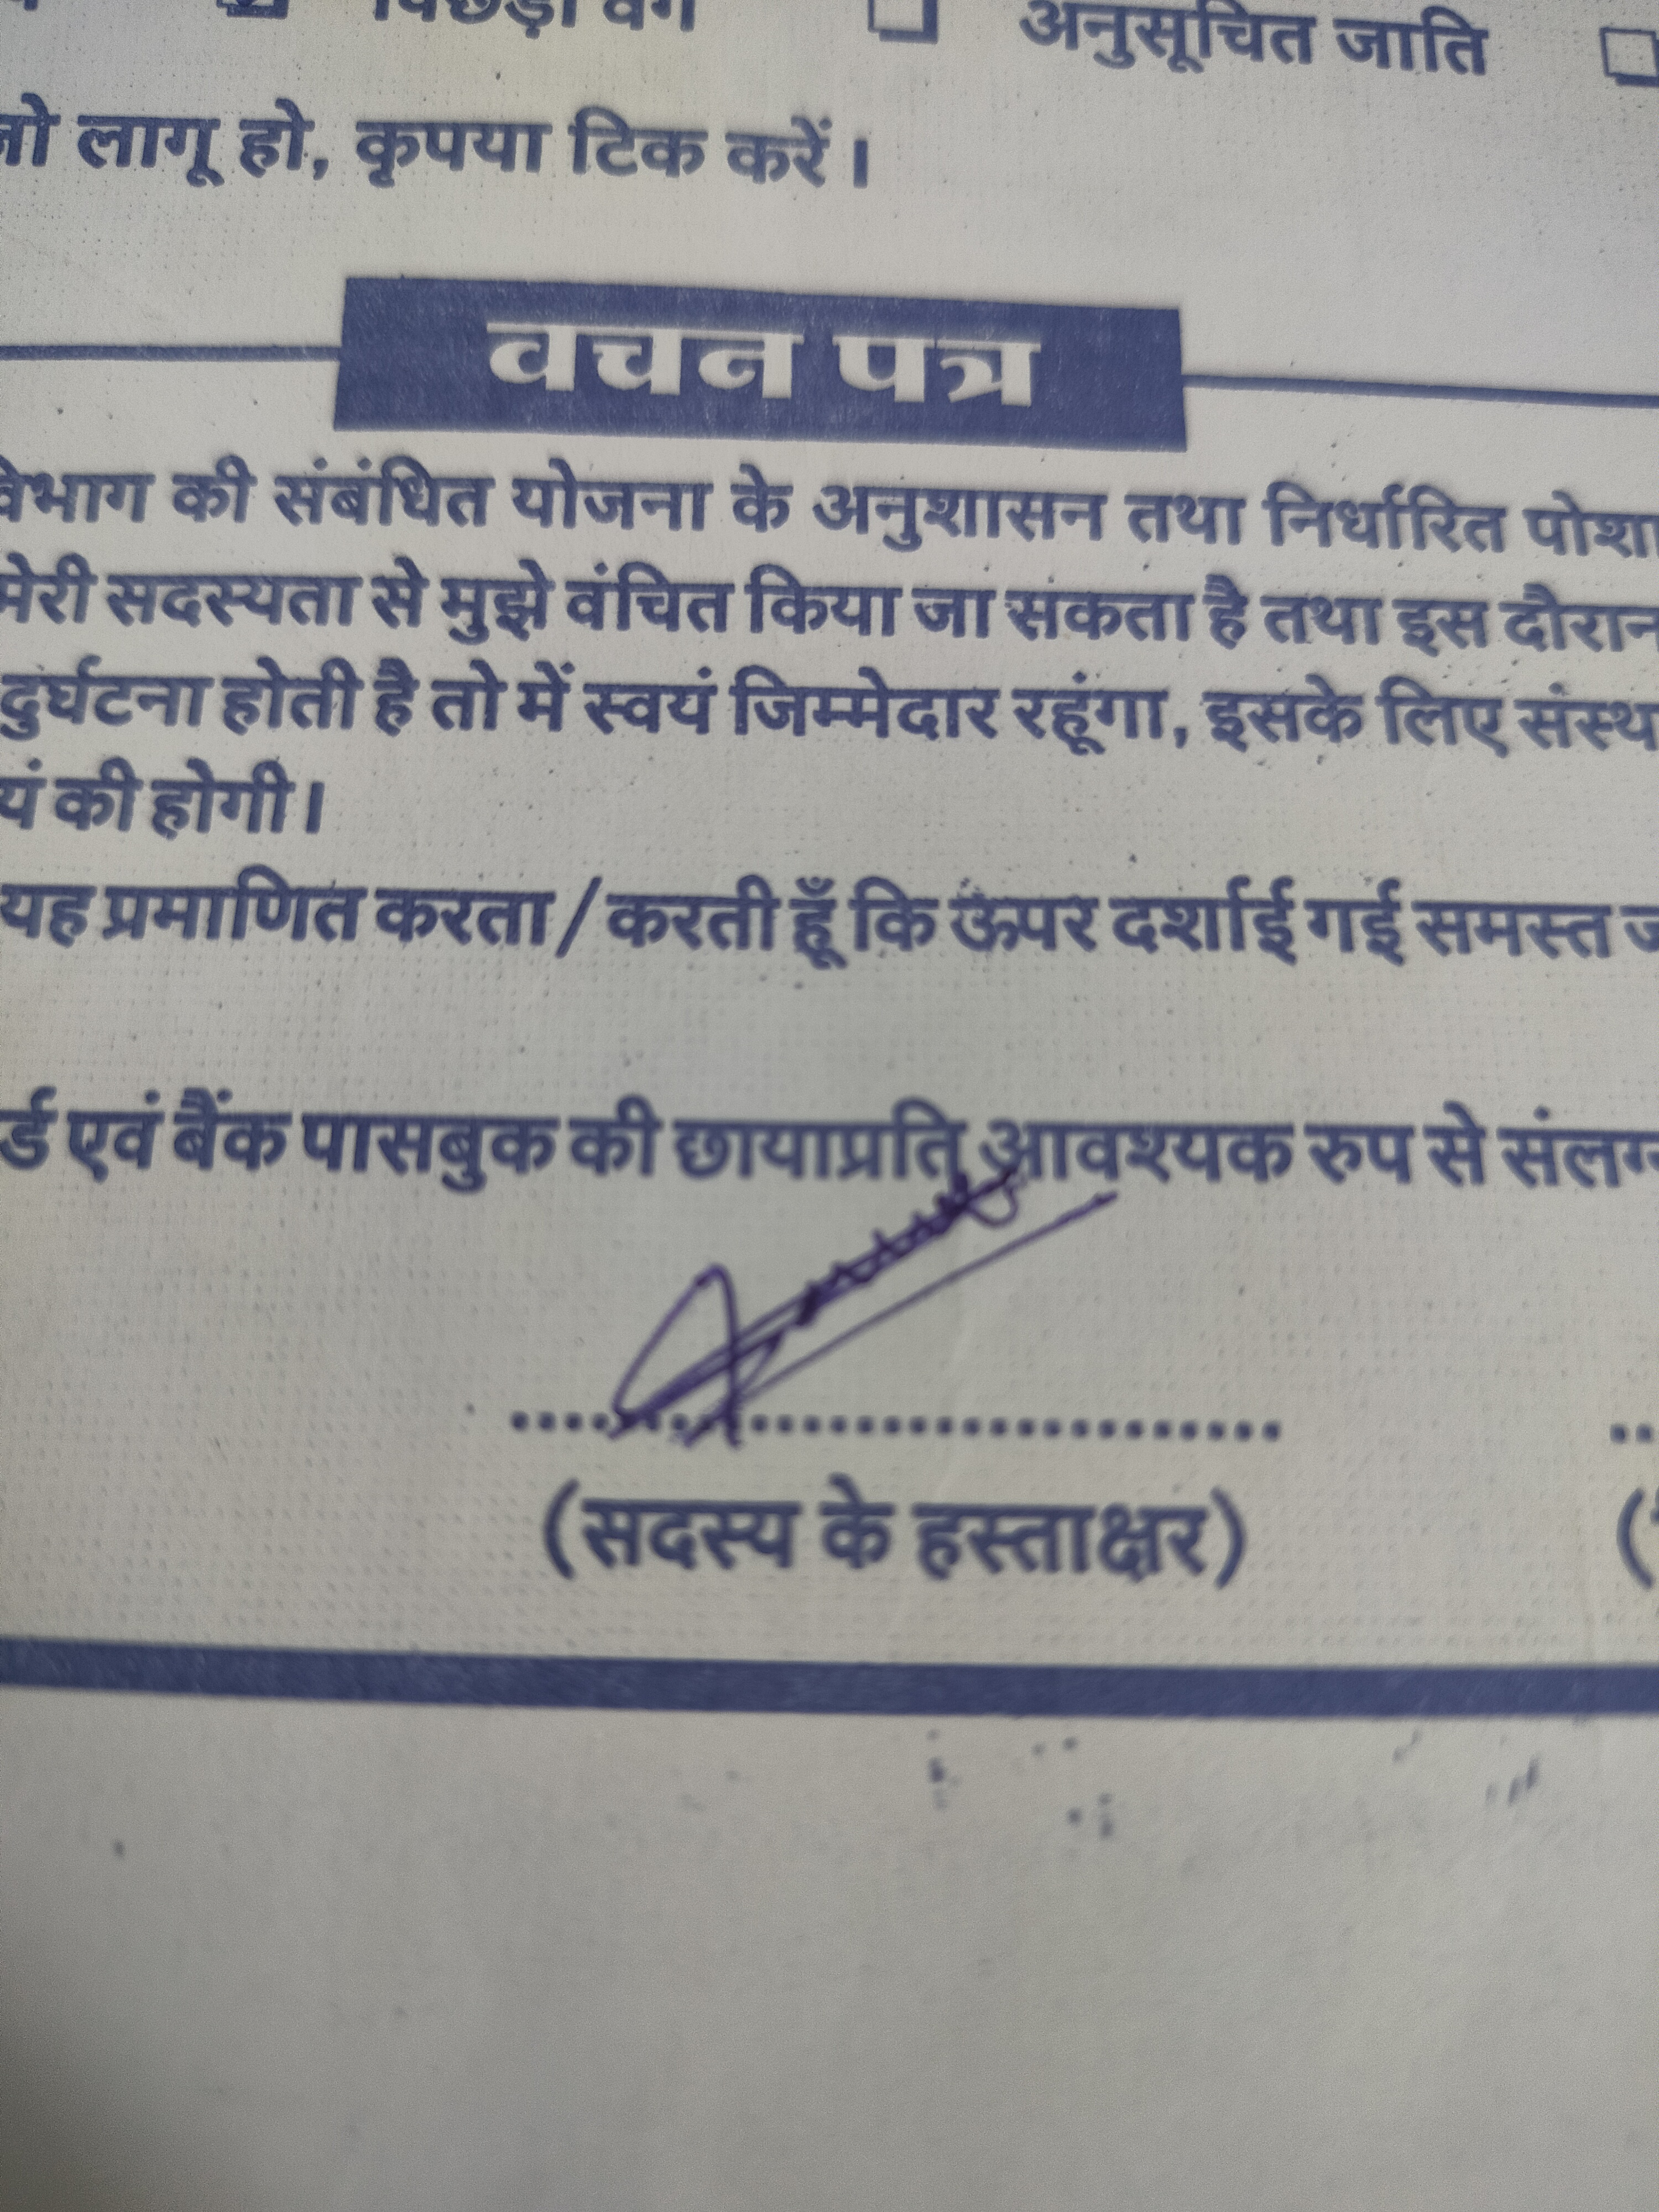 पिछड़ा वर्ग अनुसूचित जाति
जो लागू हो, कृपया टिक करें।
वचन पत्र
विभाग की संबंधित योजना के अनुशासन तथा निर्धारित
मेरी सदस्यता से मुझे वंचित किया जा सकता है तथा इस दौरान
दुर्घटना होती है तो में स्वयं जिम्मेदार रहूंगा, इसके लिए
की होगी।
यह प्रमाणित करता / करती हूँ कि ऊपर दर्शाई गई समस्त
एवं बैंक पासबुक की छायाप्रति आवश्यक रुप से
(सदस्य के हस्ताक्षर)